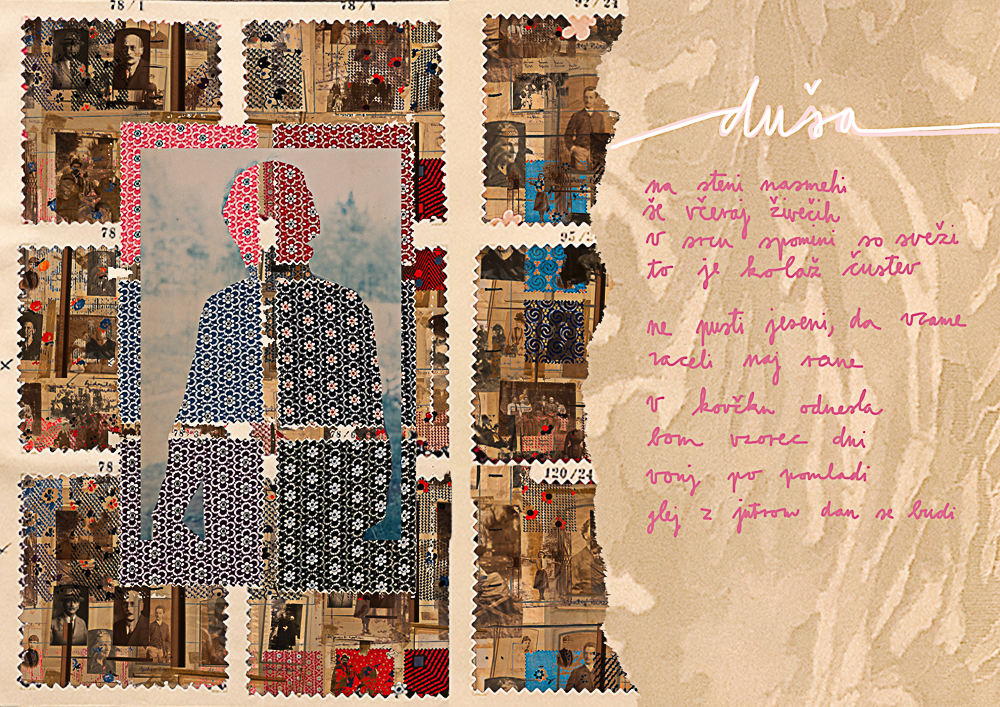 78/1
78/4
92/24
duša
na steni nasmehi
še včeraj živečih
v srcu spomini so sveži
to je kolaž čustev
ne pusti jeseni, da vzame
zaceli naj rane
v kovčku odnesla
bom vzorec dni
vonj po pomladi
glej z jutrom dan se budi
78
95/2
78
120/24